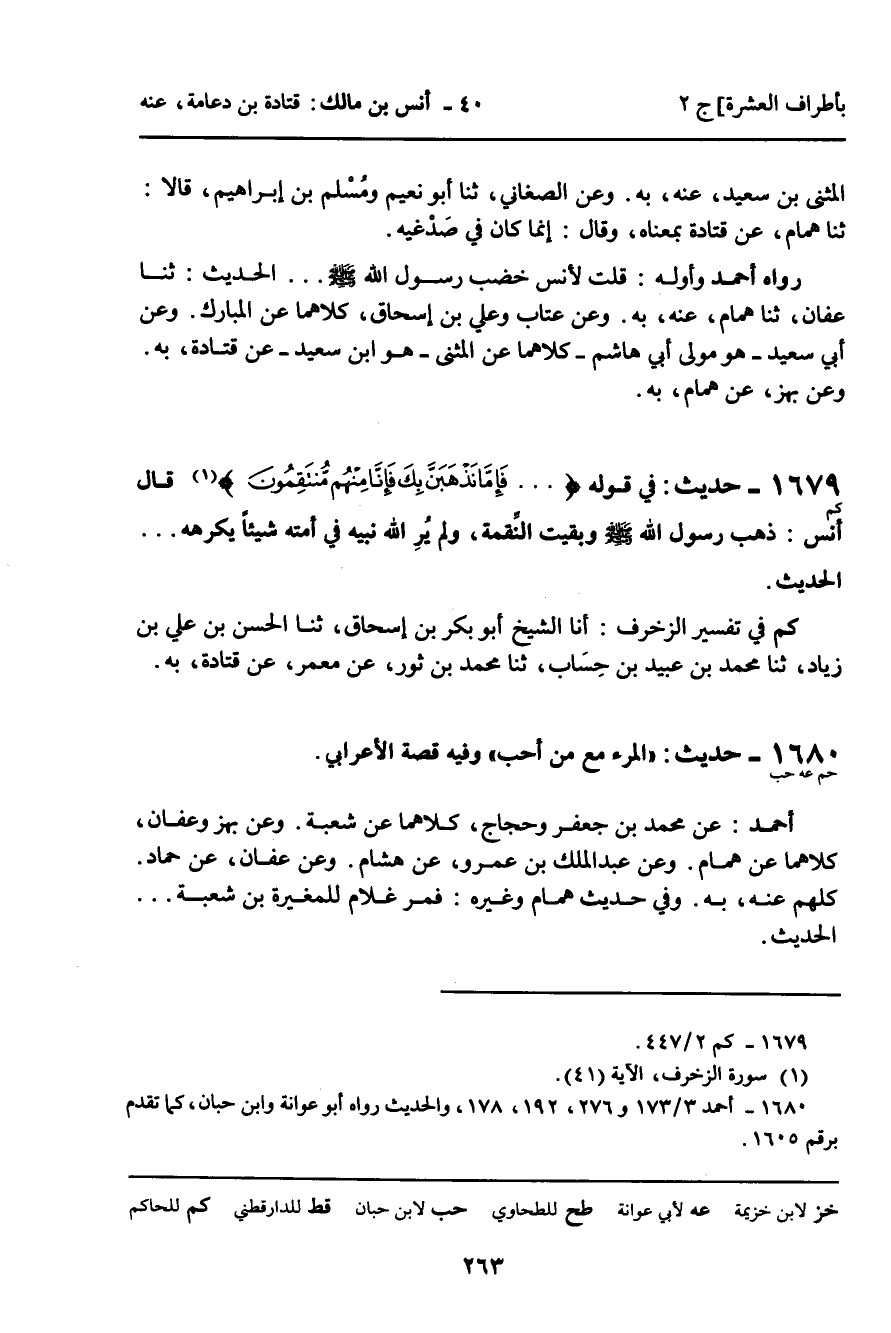 بأطراف العشرة] ج ٢ ٤٠ ـ أنس بن مالك: قتادة بن دعامة، عنه
المثنى بن سعيد، عنه، به. وعن الصغاني، ثنا أبو نعيم ومُسْلم بن إبراهيم، قالا :
ثنا همام، عن قتادة بمعناه، وقال : إنما كان في صَدْغيه.
رواه أحمد وأوله : قلت لأنس خضب رسول الله ﷺ... الحديث : ثنا
عفان، ثنا همام، عنه، به. وعن عتاب وعلي بن إسحاق، كلاهما عن المبارك. وعن
أبي سعيد ـ هو مولى أبي هاشم ـ كلاهما عن المثنى ـ هو ابن سعيد ـ عن قتادة، به.
وعن بهز، عن همام، به.
١٦٧٩ ـ حديث: في قوله ﴿ ... فَإِمَّا نَذْهَبَنَّ بِكَ فَإِنَّا مِنْهُم مُّنتَقِمُونَ ﴾(١) قال
كم
أنس : ذهب رسول الله ﷺ وبقيت النِّقمة، ولم يُرِ الله نبيه في أمته شيئاً يكرهه...
الحديث.
كم في تفسير الزخرف : أنا الشيخ أبو بكر بن إسحاق، ثنا الحسن بن علي بن
زياد، ثنا محمد بن عبيد بن حِسَاب، ثنا محمد بن ثور، عن معمر، عن قتادة، به.
١٦٨٠ ـ حديث: «المرء مع من أحب» وفيه قصة الأعرابي.
حم عه حب
أحمد : عن محمد بن جعفر وحجاج، كلاهما عن شعبة. وعن بهز وعفان،
كلاهما عن همام. وعن عبدالملك بن عمرو، عن هشام. وعن عفان، عن حماد.
كلهم عنه، به. وفي حديث همام وغيره : فمر غلام للمغيرة بن شعبة...
الحديث.
١٦٧٩ ـ كم ٤٤٧/٢.
(١) سورة الزخرف، الآية (٤١).
١٦٨٠ ـ أحمد ١٧٣/٣ و ٢٧٦، ١٩٢، ١٧٨، والحديث رواه أبو عوانة وابن حبان، كما تقدم
برقم ١٦٠٥.
خز لابن خزيمة عه لأبي عوانة طح للطحاوي حب لابن حبان قط للدارقطني كم للحاكم
٢٦٣